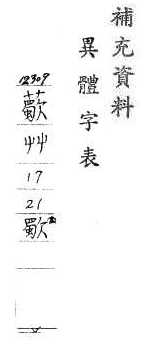 補充資料
異體字表
12309
艸
17
21
歜